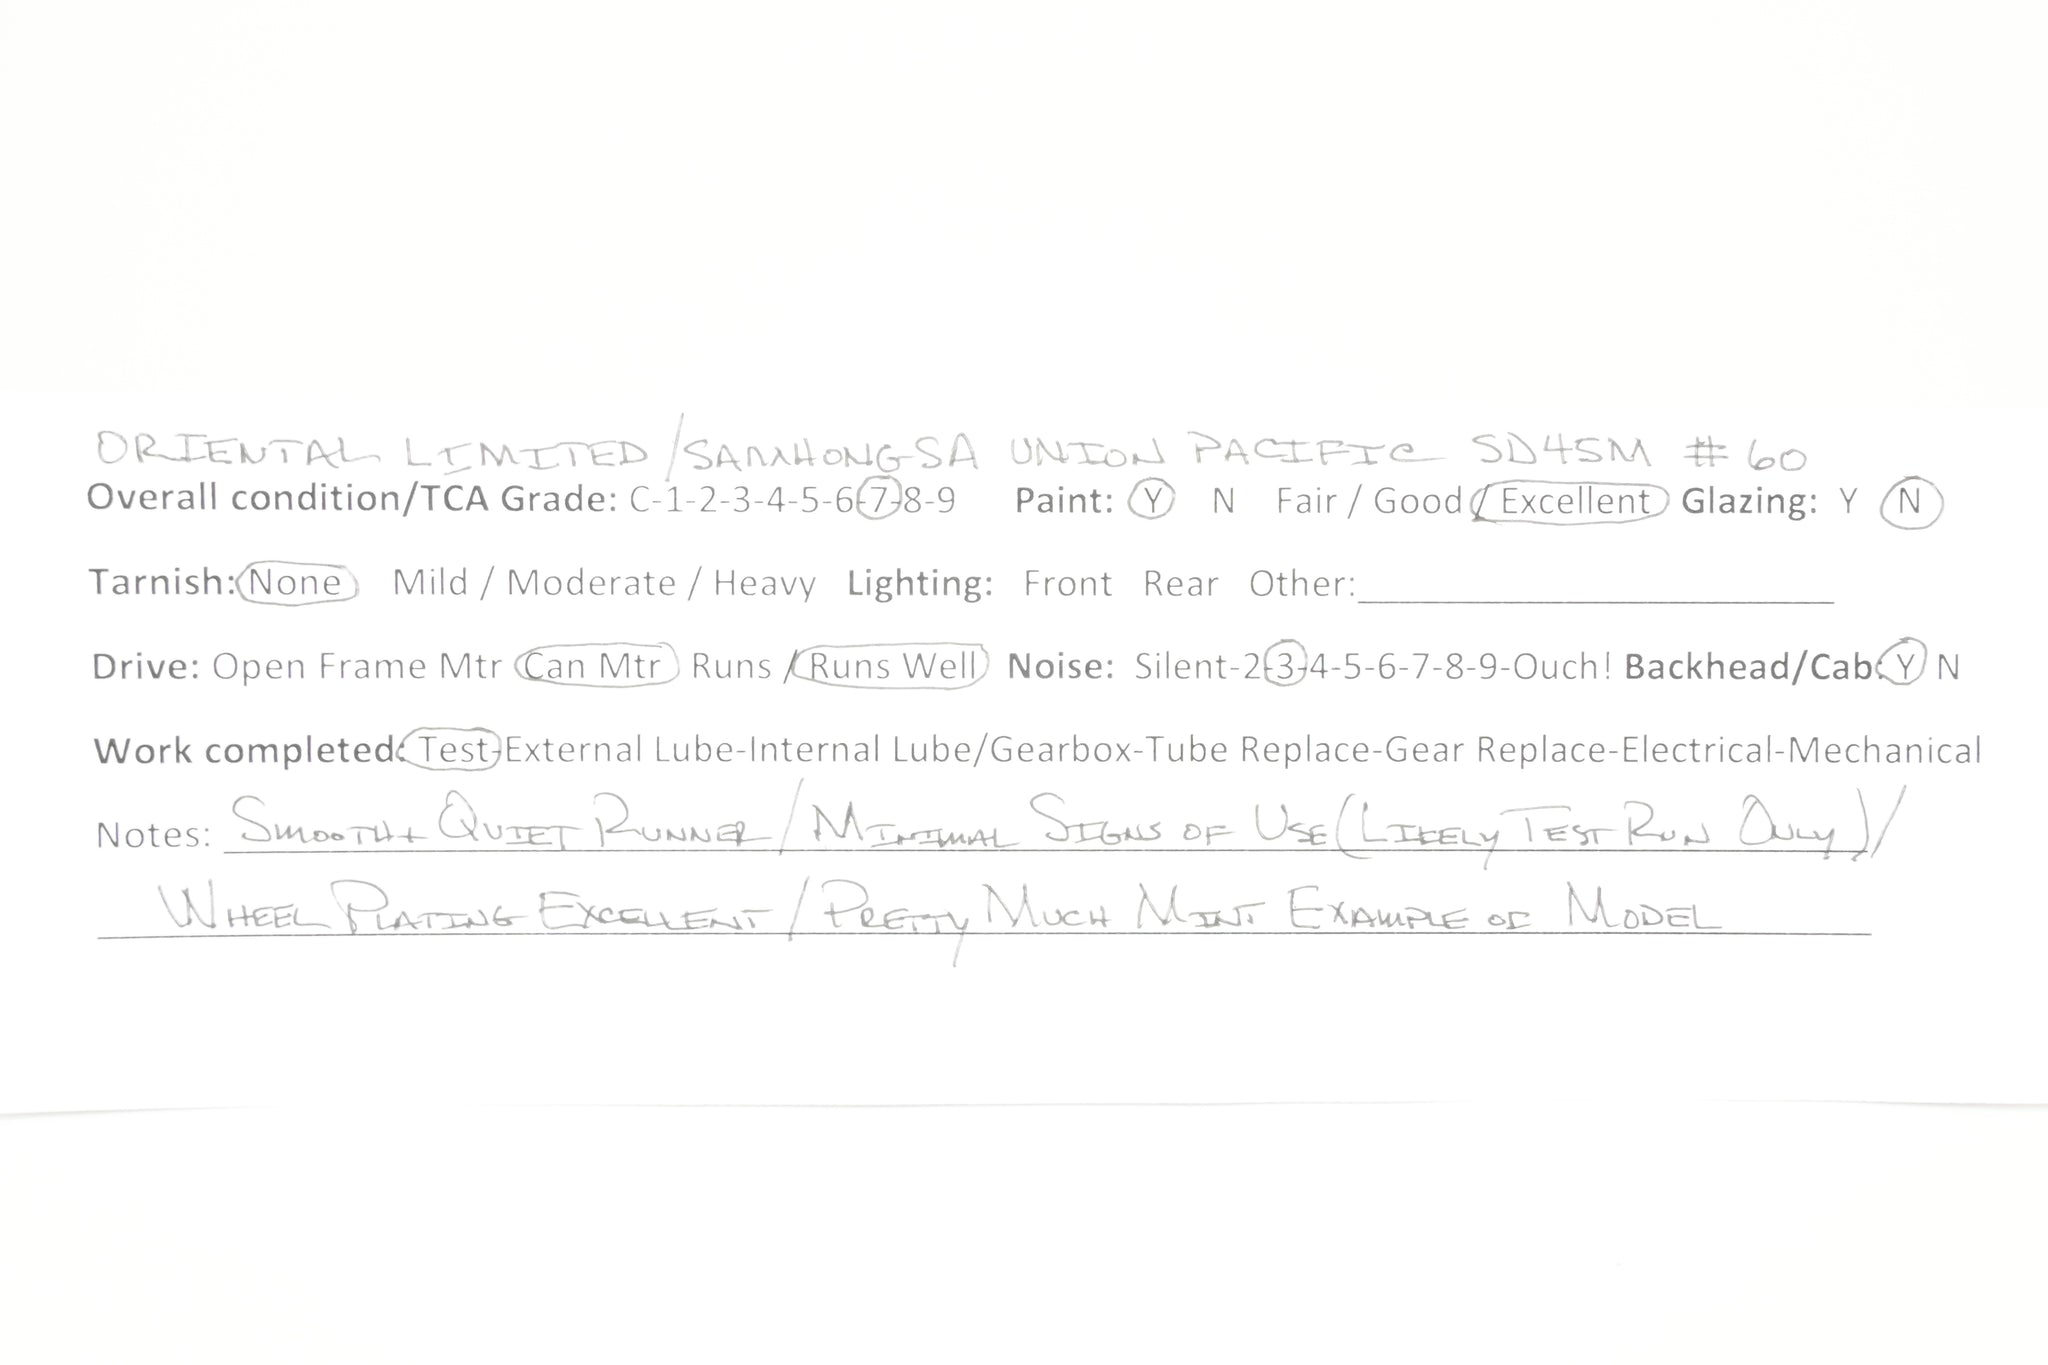 ORIENTAL LIMITED/SAMHONGSA UNION PACIFIC SD45M # 60
Overall condition/TCA Grade: C-1-2-3-4-5-6-7-8-9 Paint: Y N Fair / Good / Excellent Glazing: Y N
Tarnish: None Mild / Moderate / Heavy Lighting: Front Rear Other:
Drive: Open Frame Mtr Can Mtr Runs / Runs Well Noise: Silent-2-3-4-5-6-7-8-9-Ouch! Backhead/Cab: Y N
Work completed: Test-External Lube-Internal Lube/Gearbox-Tube Replace-Gear Replace-Electrical-Mechanical
Notes: SMOOTH + QUIET RUNNER / MINIMAL SIGNS OF USE (LIKELY TEST RUN ONLY) /
WHEEL PLATING EXCELLENT / PRETTY MUCH MINT EXAMPLE OF MODEL